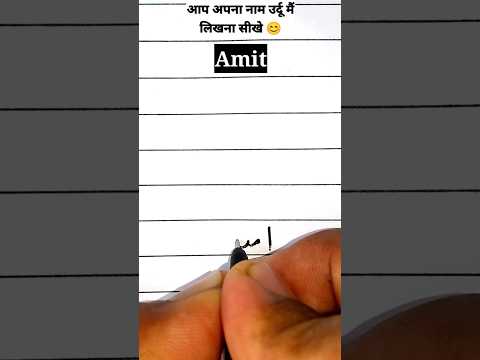 आप अपना नाम उर्दू मैं
लिखना सीखे 😊
Amit